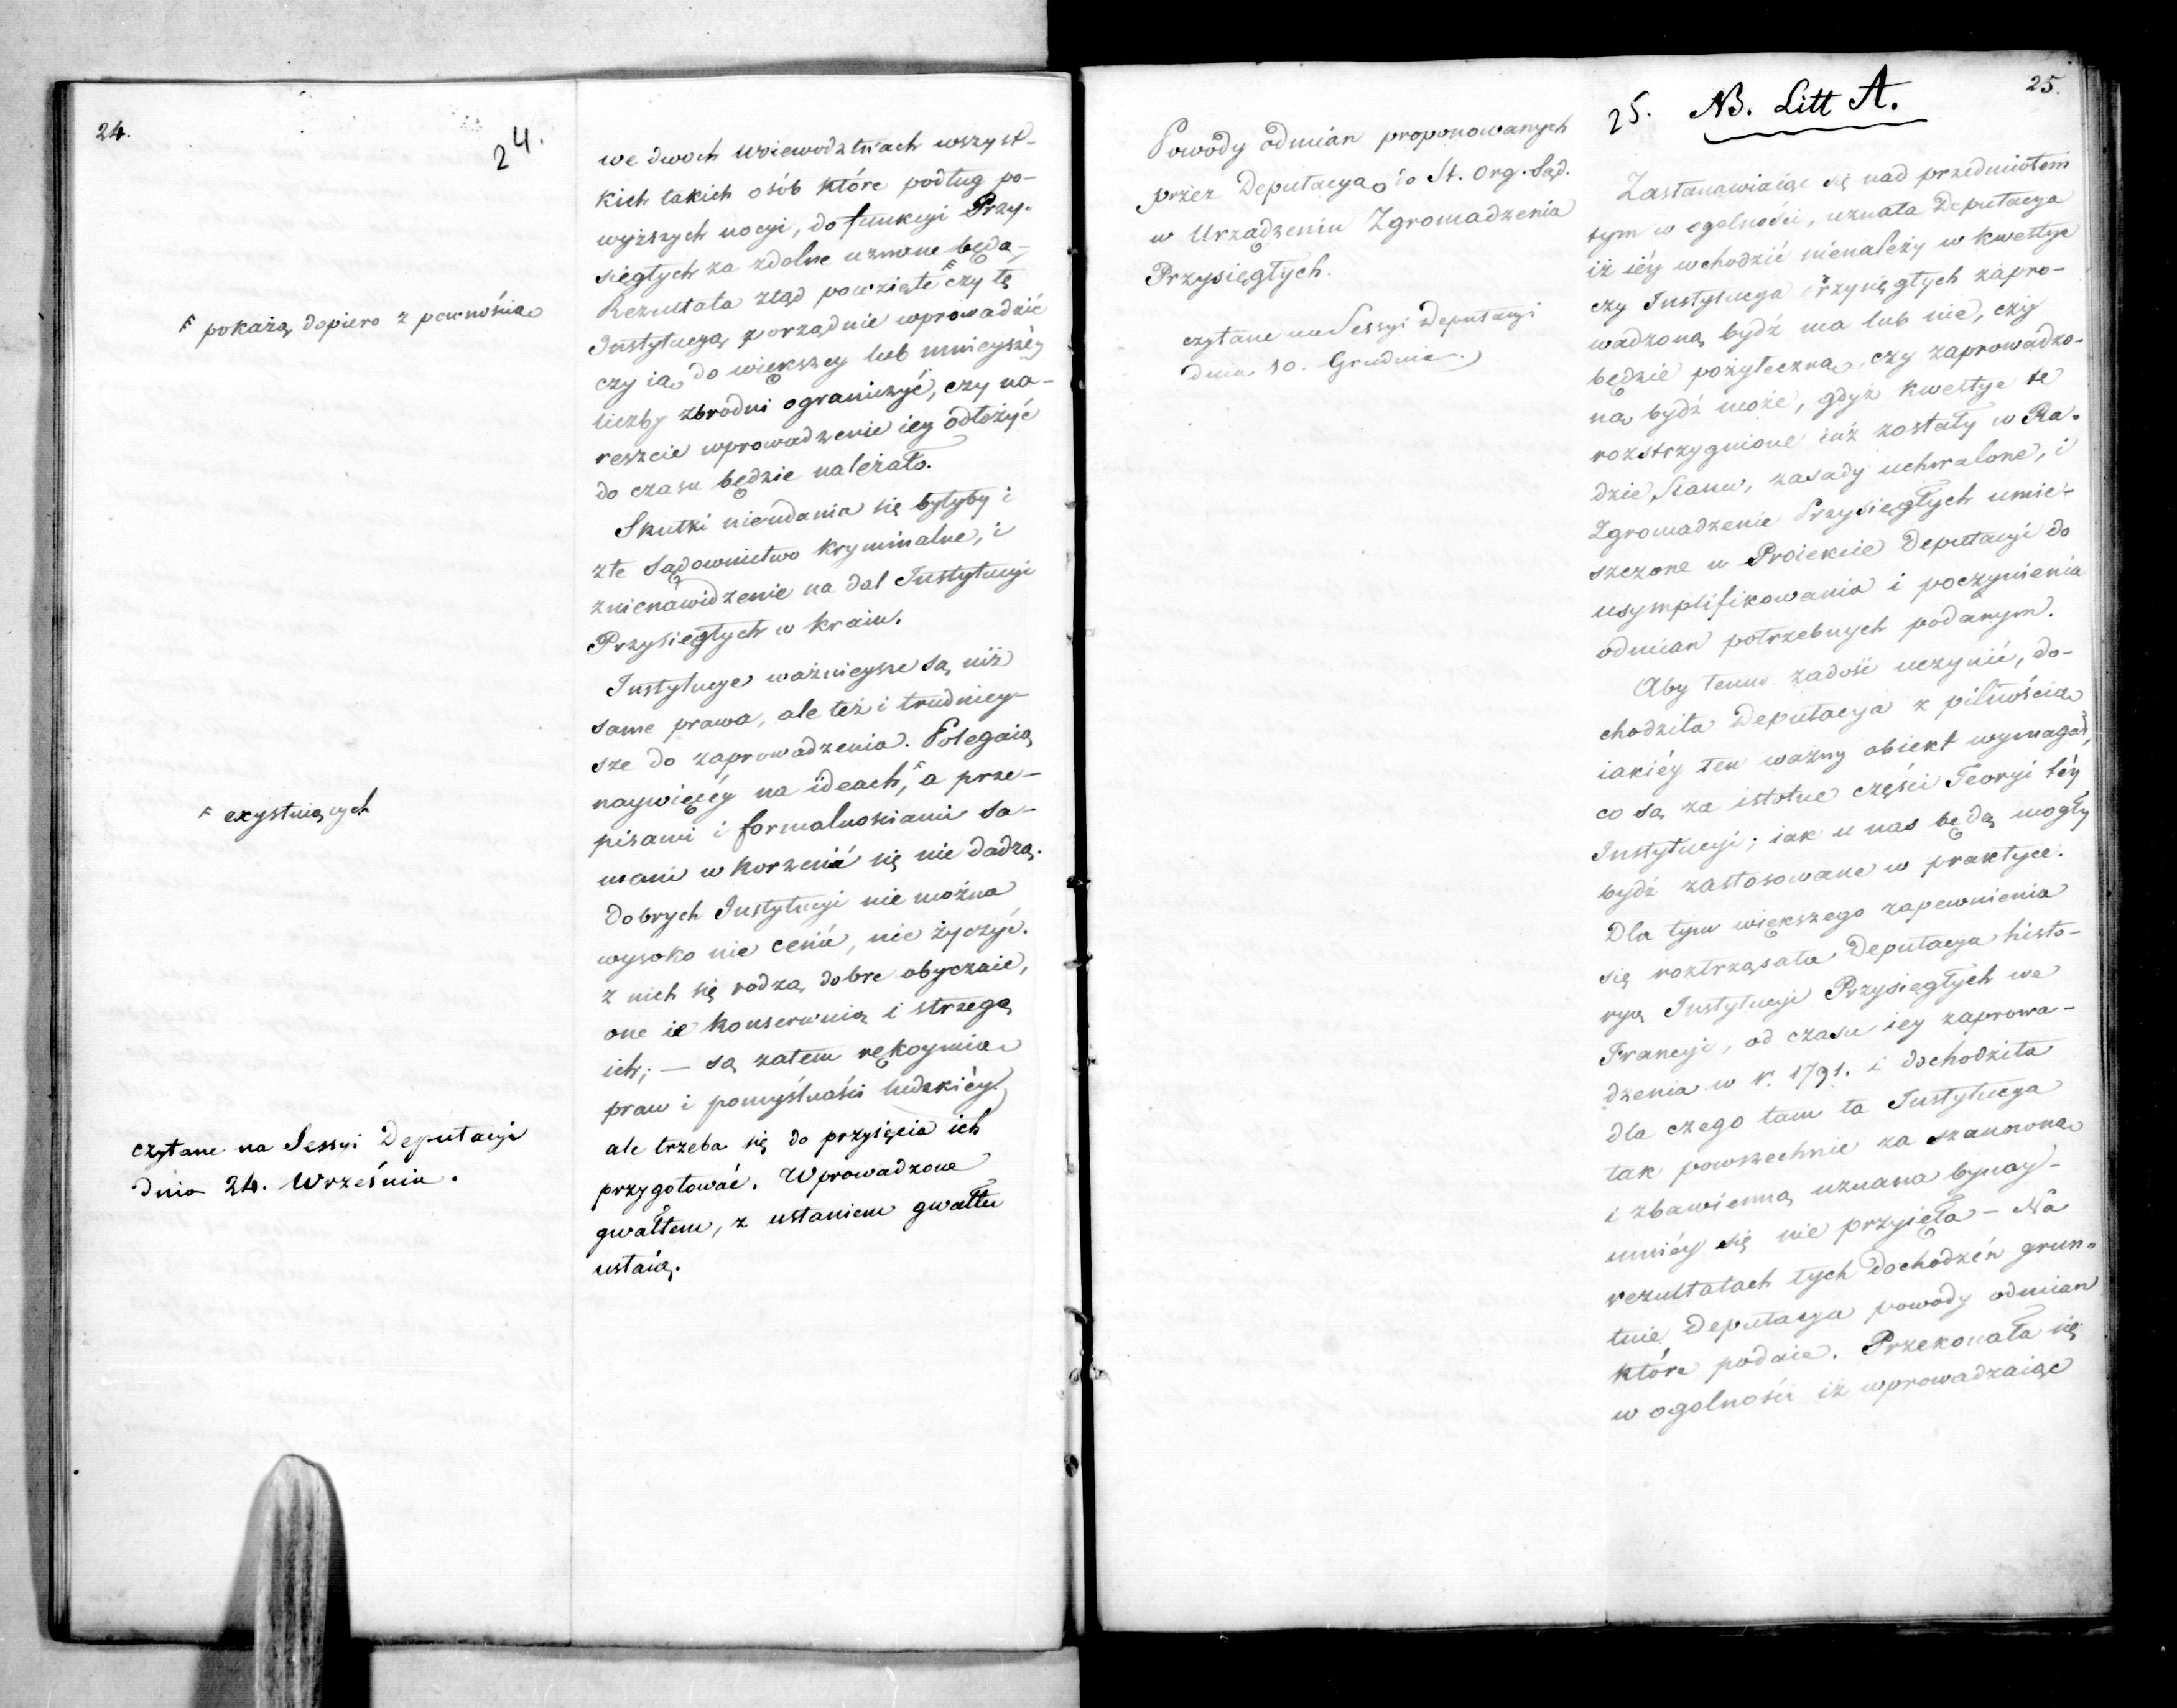 24.
24.
we dwoch Woiewodztwach wszyst-
kich takich osób które podług po-
wyższych nocyi, do funkcyi Przy-
sięgłych za zdolne uznane będą.
Rezultata ztąd powzięte F czy tę
F pokażą dopiero z pewnością
Instytucyą porządnie wprowadzić
czy ią do większey lub mnieyszéy
liczby zbrodni ograniczyć, czy na-
reszcie wprowadzenie iey odłożyć
do czasu będzie należało.
Skutki nieudania się byłyby i
złe Sądownictwo kryminalne, i
znienawidzenie na dal Instytucyi
Przysięgłych w kraiu.
Instytucye ważnieysze są niż
same prawa, ale też i trudniey-
sze do zaprowadzenia. Polegaią
naywięcéy na ideach, F a prze-
F exystuiących
pisami i formalnosciami sa-
memi wkorzenić się nie dadzą.
Dobrych Instytucyi nie można
wysoko nie cenić, nie życzyć.
z nich się rodzą dobre obyczaie,
one ie konserwuią i strzegą
ich; — są zatem rękoymią
praw i pomyślności ludzkiéy.
ale trzeba się do przyięcia ich
czytane na Sessyi Deputacyi
dnia 24. Września.
przygotować. Wprowadzone
gwałtem, z ustaniem gwałtu
ustaią.
25.
25. NB. Litt A.
Powody odmian proponowanych
przez Deputacyą do St. Org. Sąd.
w Urządzeniu Zgromadzenia
Przysięgłych.
czytane na Sessyi Deputacyi
dnia 10. Grudnia.
Zastanawiaiąc się nad przedmiotem
tym w ogolności, uznała Deputacya
iż iéy wchodzić nienależy w kwestye
czy Instytucya Przysięgłych zapro-
wadzoną bydź ma lub nie, czy
będzie pożyteczną, czy zaprowadzo-
ną bydź może, gdyż kwestye te
rozstrzygnione iuż zostały w Ra-
dzie Stanu, zasady uchwalone, i
Zgromadzenie Przysięgłych umie-
szczone w Proiekcie Deputacyi do
usymplifikowania i poczynienia
odmian potrzebnych podanym.
Aby temu zadość uczynić, do-
chodziła Deputacya z pilnością
iakiéy ten ważny obiekt wymagał,
co są za istotne części Teoryi téy
Instytucyi; iak u nas będą mogły
bydź zastosowane w praktyce.
Dla tym większego zapewnienia
się roztrząsała Deputacya histo-
ryą Instytucyi Przysięgłych we
Francyi, od czasu iey zaprowa-
dzenia w r. 1791. i dochodziła
dla czego tam ta Instytucya
tak powszechnie za szanowną
i zbawienną uznana bynay-
mniéy się nie przyięła — Na
rezultatach tych dochodzéń grun-
tuie Deputacya powody odmian
które podaie. Przekonała się
w ogolności iż wprowadzaiąc